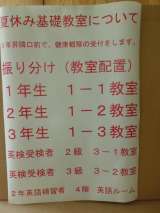 夏休み基礎教室について
前で、健康観察の受付をします。
振り分け（教室配置）
1年生 1－1教室
2年生 1－2教室
3年生 1－3教室
英検受検者 2級 3－1教室
英検受検者 3級 3－2教室
2年英語補習者 4階 英語ルーム